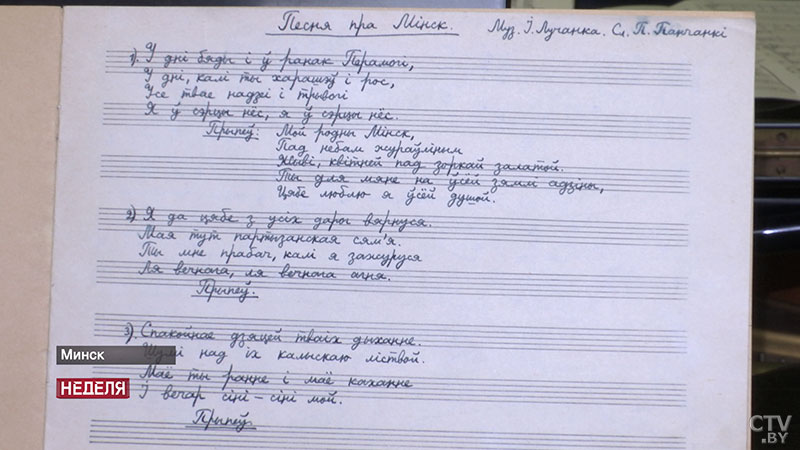 Песня пра Мінск.
Муз. І. Лучанка. Сл. П. Панчанкі
1). У дні бяды і ў ранак Перамогі,
У дні, калі ты харашэў і рос,
Усе твае надзеі і трывогі
Я ў сэрцы нёс, я ў сэрцы нёс.
Прыпеў: Мой родны Мінск,
Пад небам жураўліным
Жыві, квітней пад зоркай залатой.
Ты для мяне на ўсёй зямлі адзіны,
Цябе люблю я ўсёй душой.
2) Я да цябе з усіх дарог вярнуся.
Мая тут партызанская сям'я.
Ты мне прабач, калі я зажуруся
Ля вечнага, ля вечнага агня.
Прыпеў.
3). Спакойнае дзяцей тваіх дыханне.
Шумі над іх калыскаю ліствой.
Маё ты ранне і маё каханне
І вечар сіні – сіні мой.
Прыпеў.
Минск
НЕДЕЛЯ
CTV
.BY